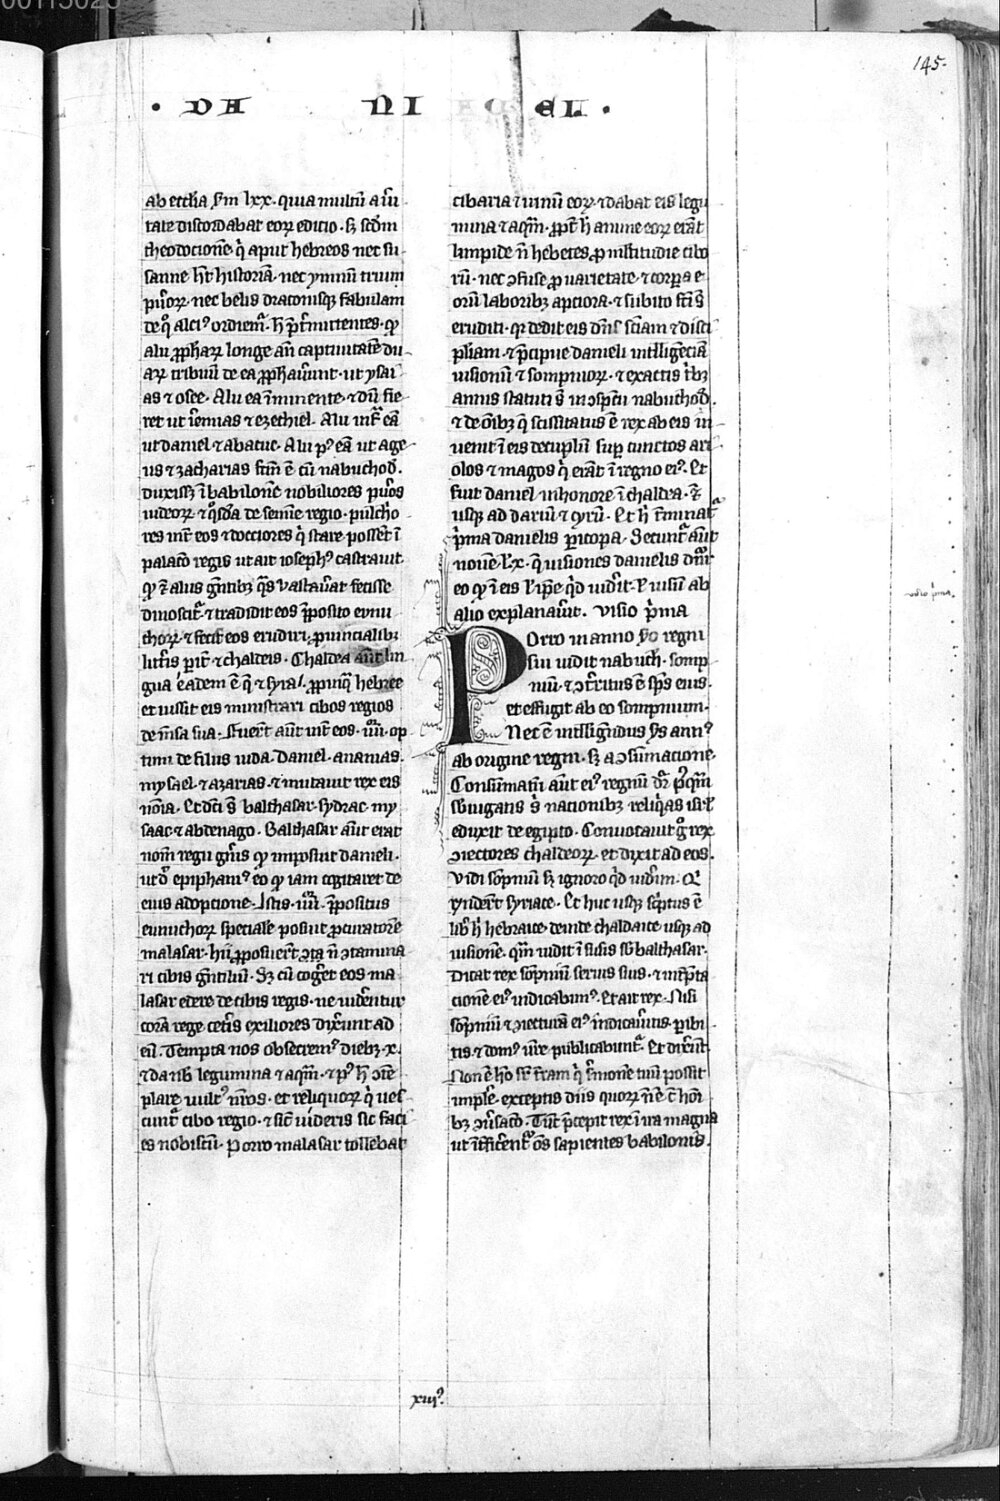 145.
· DA NI EL ·
ab ecclīa s̄m lxx. quia multū a ūi
tate discordabat eoꝝ edicio. sꝫ scd̄m
theodocionē q̇ aput hebreos nec su
sanne hn̄t historiā. nec ymnū trium
pūoꝝ. nec belis draconisqꝫ fabulam
alii ꝓph̄aꝝ longe an̄ captiuitatē du
aꝝ tribuū de ea ꝓph̄auerunt. ut ysai
as ⁊ osee. Alii ea īminente. ⁊ dū fie
ret ut ieremias ⁊ ezechiel. Alii int̄ eā
ut daniel ⁊ abacuc. Alii pꝰ eā ut age
us ⁊ zacharias fc̄m ē cū nabuchod̄.
duxissꝫ ī babilonē nobiliores pūos
iudeoꝝ ⁊ q̇sdā de semine regio. pulch̄o
res int̄ eos ⁊ docciores q̇ stare possēt ī
palacō regis ut ait iosephꝰ castrauit
dinoscit̄. ⁊ tradidit eos p̄posito eunu
choꝝ. ⁊ fecit eos erudiri ꝓuincialibꝫ
litt̄is p̄it̄ ⁊ chaldeis. Chaldea aut̄ lin
gua eadem ē q̄ ⁊ syra. ꝓpinq̄ hebree
et iussit eis ministrari cibos regios
de m̄sa sua. Fuer̄t aūt int̄ eos. iiiior. op
timi de filiis iuda. Daniel. ananias.
mysael. ⁊ azarias. ⁊ mutauit rex eis
nōia. Et dc̄i s̄ balthasar. sydrac. my
saac ⁊ abdenago. Balthasar aūt erat
nom̄ regii gn̄is ꝙ imposuit danieli.
ut d̄ epiphaniꝰ eo ꝙ iam cogitaret de
eius adopcione. Istis. iiiior. p̄positus
eunuchoꝝ speciale posuit ꝓcuratorē
malasar. hii ꝓposuer̄t ꝯtā n̄ ꝯtamina
ri cibis gn̄tiliū. Sꝫ cū coḡet eos ma
lasar edere de cibis regis. ne uider̄tur
corā rege cet̄is exiliores dixer̄unt ad
eū. Tempta nos obsecremꝰ diebꝫ .x.
⁊ da nb̄ legumina ⁊ aq̄m. ⁊ pꝰ h̄ ꝯtē
plare uultꝰ nr̄os. et reliquoꝝ q̇ ues
cunt̄ cibo regio. ⁊ sic̄ uideris sic faci
es nobiscū. Porro malasar tollebat
cibaria ⁊ uinū eoꝝ. ⁊ dabat eis legu
mina ⁊ aq̄m. ꝓpt̄ h̄ anime eoꝝ erāt
limpide n̄ hebetes ꝓ multitudīe cibo
rū. nec ꝯfuse ꝓ uarietate. ⁊ corꝑa e
orū laboribꝫ apciora. ⁊ subito fc̄i s̄
eruditi. qr̄ dedit eis dn̄s sciam ⁊ disci
plinam. ⁊ p̄cipue danieli intelligēciā
uisionū ⁊ sompnioꝝ. ⁊ exactis tribꝫ
annis statuti s̄ in ꝯspectu nabuchod̄.
⁊ de ōibꝫ q̄ scissitatus ē rex ab eis in
uenit ī eis decuplū sup̄ cunctos ari
olos ⁊ magos q̇ erāt ī regno eiꝰ. Et
fuit daniel in honore ī chaldea. ⁊
usqꝫ ad dariū ⁊ cyrū. Et h̄ t̄minat̄
p̄ma danielis ꝑicopa. Secunt̄ aūt
eo ꝙ ī eis ul̄ ip̄e q̇d uidīt. ul̄ uisū ab
alio explanauīt. Visio p̄ma
Porro in anno s̄o regni
sui uidit nabuch̄. somp
niū. ⁊ ꝯt̄ritus ē sp̄s eius.
et effugit ab eo sompnium.
Nec ē intelligēdus s̄s annꝰ
ab origine regni. sꝫ a ꝯsūmacione.
Consūmatū aūt eiꝰ regnū dr̄ pꝰq̄m
subiugatis s̄ nacionibꝫ reliq̇as isr̄l
eduxit de egipto. Conuocauit g̊ rex
ꝯiectores chaldeoꝝ. et dixit ad eos.
Vidi sōpniū sꝫ ignoro q̇d uiderim. Q̇
rn̄derūt syriace. Et huc usqꝫ sc̄ptus ē
lib̄ h̄ hebraice. deinde chaldaice usqꝫ ad
uisionē. quā uidit ī susis sb̄ balthasar.
Dicat rex sōpniū seruis suis. ⁊ int̄p̄ta
cionē eiꝰ indicabimꝰ. Et ait rex. Nisi
sōpniū ⁊ ꝯiecturā eiꝰ indicauitis ꝑibi
tis. ⁊ domꝰ ur̄e publicabunt̄. Et dixer̄t
Non ē hō sr̄ t̄ram q̇ s̄monē tuū possit
implē. exceptis diis quoꝝ n̄ ē c̄ hōi
bꝫ ꝯūsacō. Tūc p̄cepit rex ī ira magna
ut īt̄ficerent̄ oēs sapientes babilonis.
visio p̄ma.
xiiiꝰ.